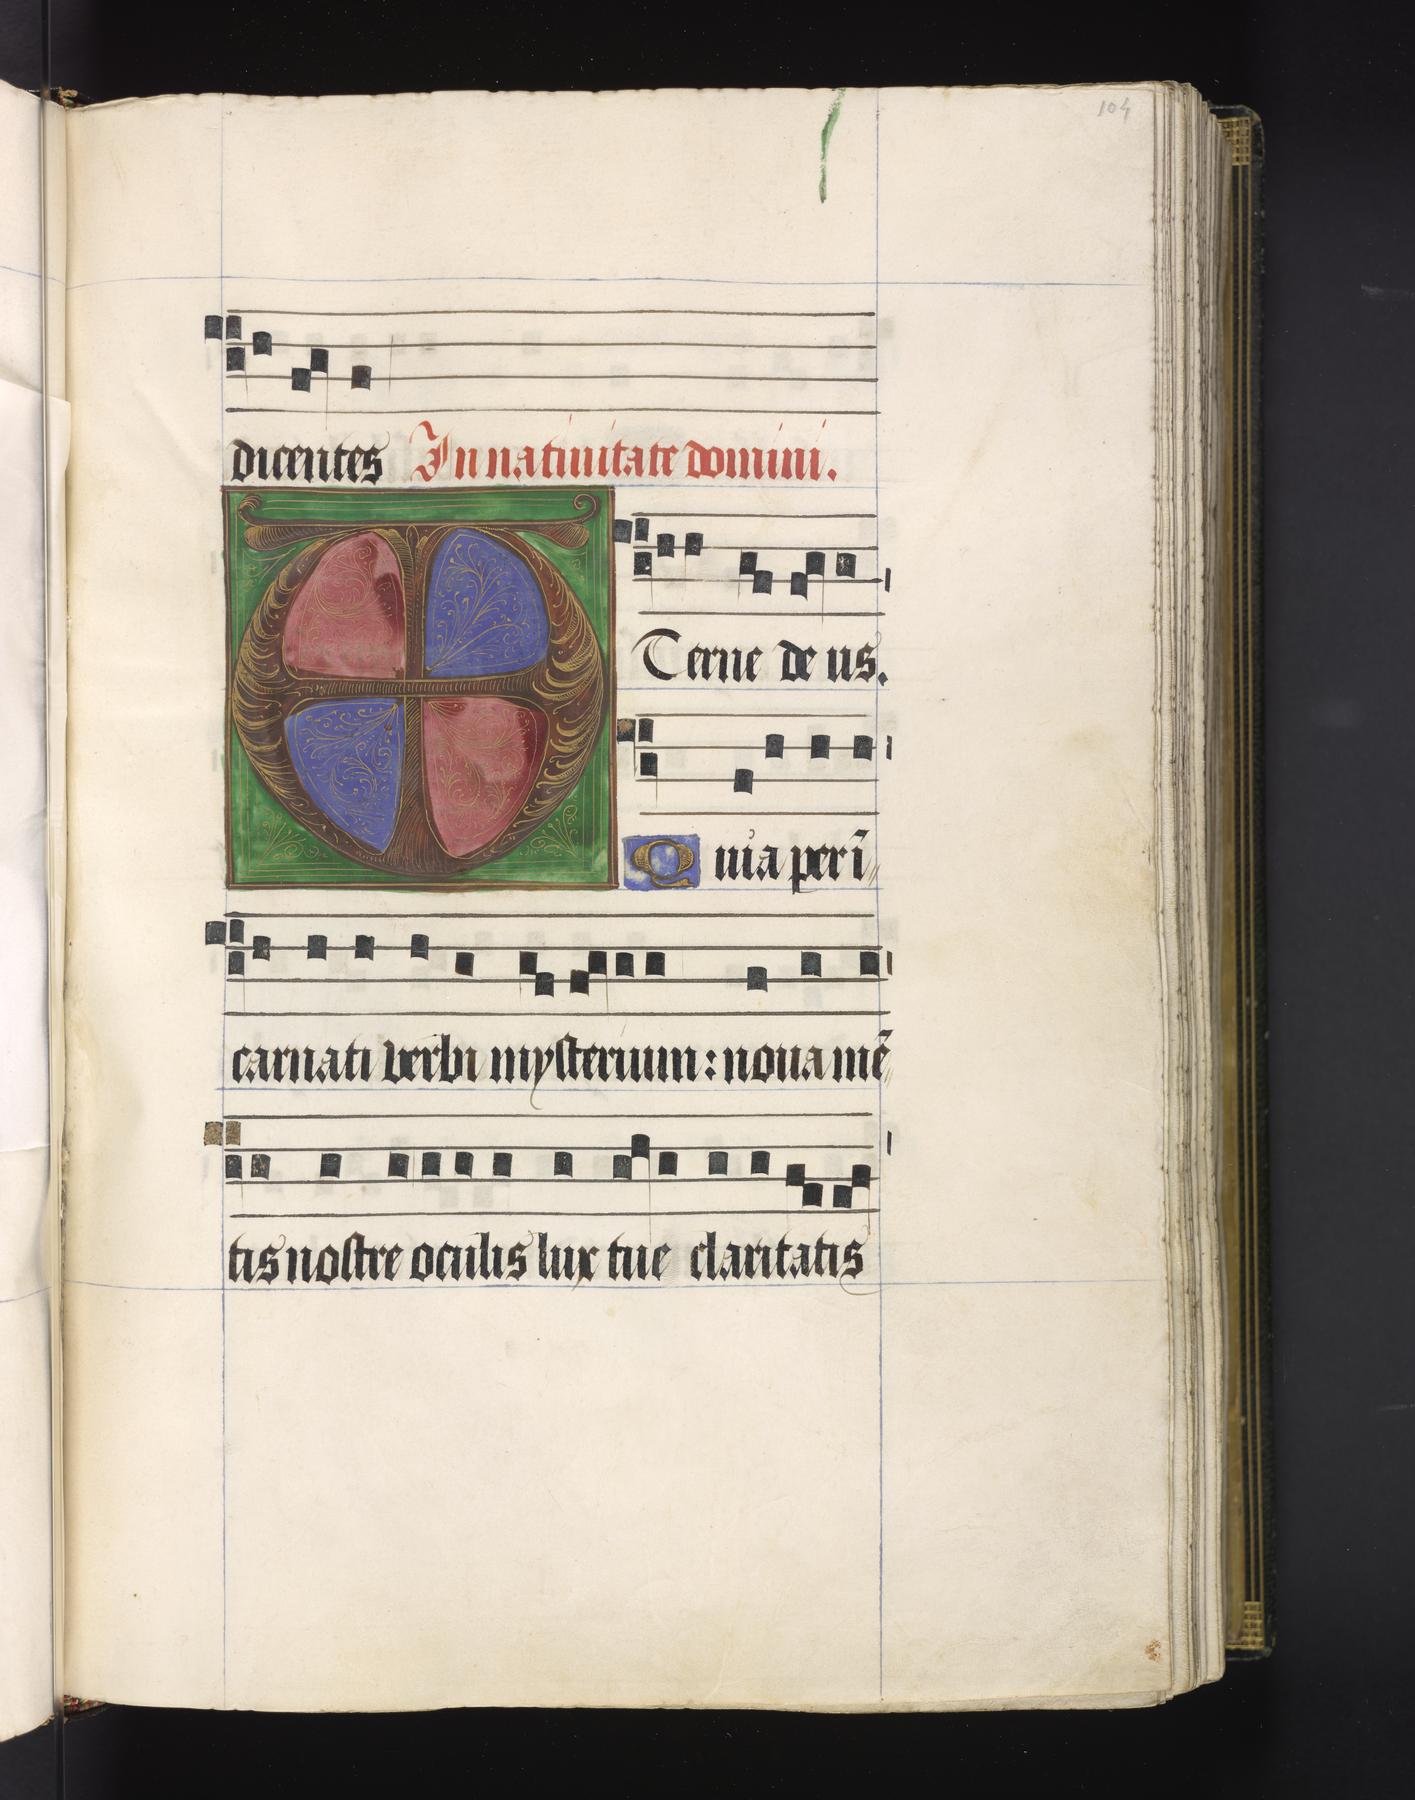 104
dicentes In natiuitate domini.
E Terne deus.
Quia per ī
carnati verbi mysterium: noua mē
tis nostre oculis lux tue claritatis